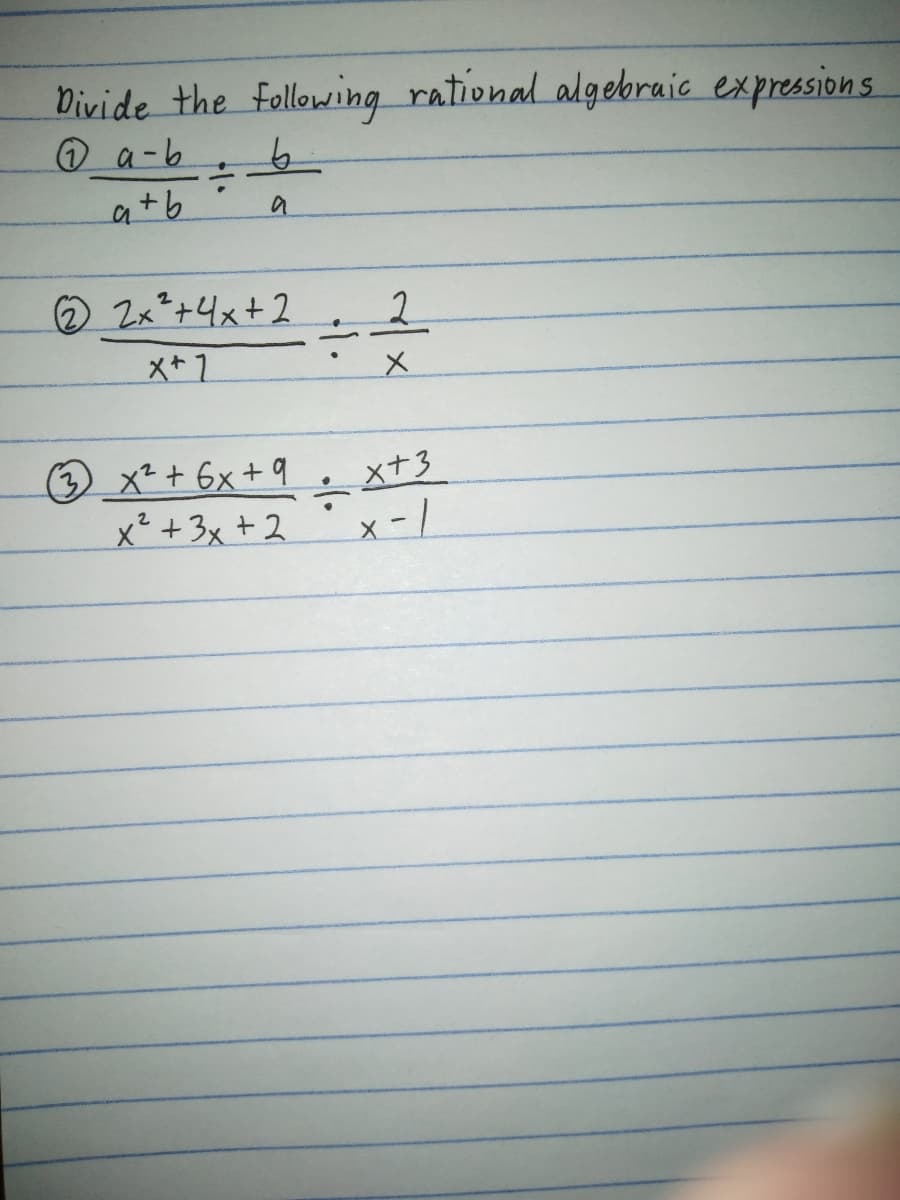 Divide the following rational algebraic expressions
① a-b ÷ b
a+b a
② 2x²+4x+2 ÷ 2
x+7 x
③ x² + 6x + 9 ÷ x+3
x² + 3x + 2 x - 1